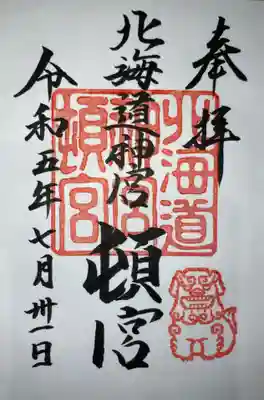 奉拝
北海道神宮
頓宮
令和五年七月卅一日
北海道
神宮
頓宮